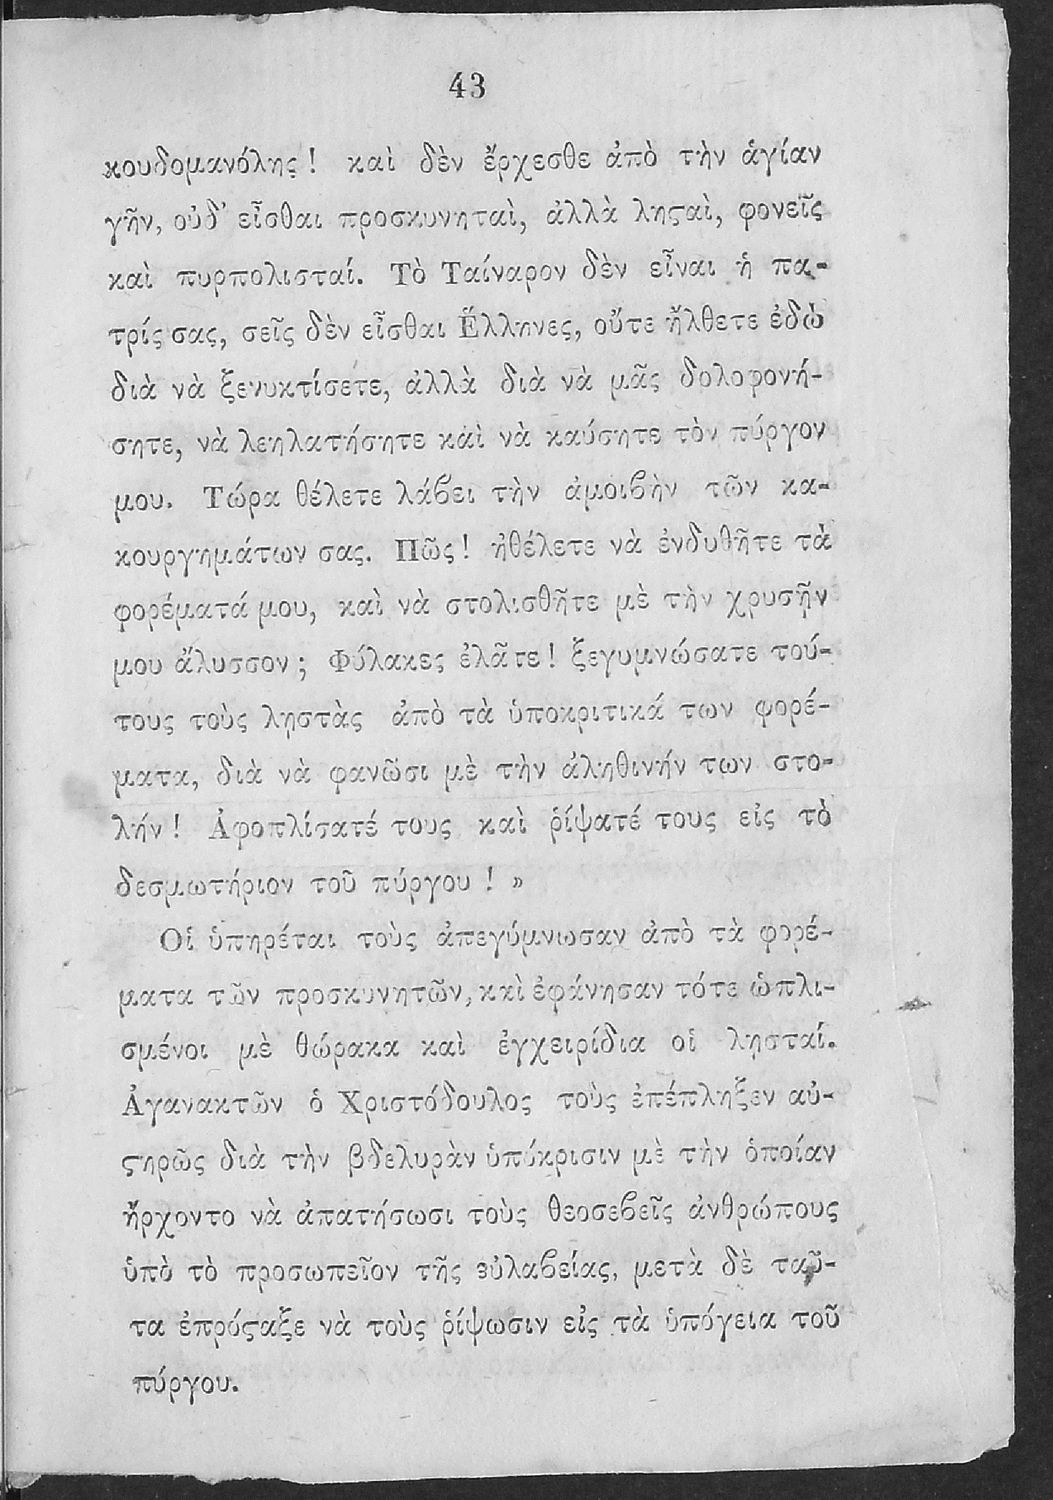 43
κουδομανόλης! καὶ δὲν ἔρχεσθε ἀπὸ τὴν ἁγίαν
γῆν, οὐδ' εἶσθαι προσκυνηταὶ, ἀλλὰ λῃϛαὶ, φονεῖς
καὶ πυρπολισταί. Τὸ Ταίναρον δὲν εἶναι ἡ πα-
τρίς σας, σεῖς δὲν εἶσθαι Ἕλληνες, οὔτε ἤλθετε ἐδῶ
διὰ νὰ ξενυκτίσετε, ἀλλὰ διὰ νὰ μᾶς δολοφονή-
σητε, νὰ λεηλατήσητε καὶ νὰ καύσητε τὸν πύργον
μου. Τώρα θέλετε λάβει τὴν ἀμοιβὴν τῶν κα-
κουργημάτων σας. Πῶς! ἠθέλετε νὰ ἐνδυθῆτε τὰ
φορέματά μου, καὶ νὰ στολισθῆτε μὲ τὴν χρυσῆν
μου ἄλυσσον; Φύλακες ἐλᾶτε! ξεγυμνώσατε τού-
τους τοὺς λῃστὰς ἀπὸ τὰ ὑποκριτικά των φορέ-
ματα, διὰ νὰ φανῶσι μὲ τὴν ἀληθινήν των στο-
λήν! Ἀφοπλίσατέ τους καὶ ῥίψατέ τους εἰς τὸ
δεσμωτήριον τοῦ πύργου! »
Οἱ ὑπηρέται τοὺς ἀπεγύμνωσαν ἀπὸ τὰ φορέ-
ματα τῶν προσκυνητῶν, καὶ ἐφάνησαν τότε ὡπλι-
σμένοι μὲ θώρακα καὶ ἐγχειρίδια οἱ λῃσταί.
Ἀγανακτῶν ὁ Χριστόδουλος τοὺς ἐπέπληξεν αὐ-
ϛηρῶς διὰ τὴν βδελυρὰν ὑπόκρισιν μὲ τὴν ὁποίαν
ἤρχοντο νὰ ἀπατήσωσι τοὺς θεοσεβεῖς ἀνθρώπους
ὑπὸ τὸ προσωπεῖον τῆς εὐλαβείας, μετὰ δὲ ταῦ-
τα ἐπρόϛαξε νὰ τοὺς ῥίψωσιν εἰς τὰ ὑπόγεια τοῦ
πύργου.